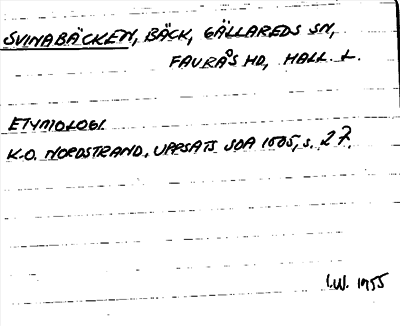 SVINABÄCKEN, BÄCK, GÄLLAREDS SN,
FAURÅS HD, HALL. L.
ETYMOLOGI.
K.O. NORDSTRAND. UPPSATS SOA 1005, s. 27.
I.W. 1955